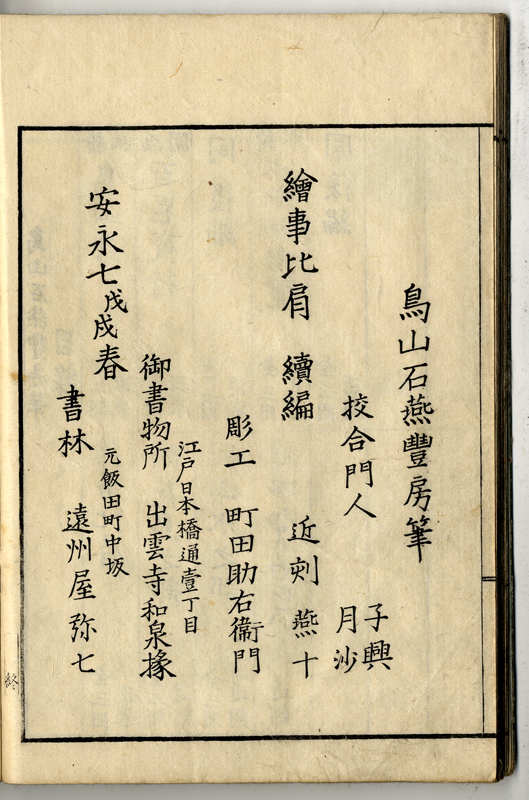 鳥山石燕豐房筆
挍合門人
子興
月沙
燕十
繪事比肩 續編 近刻
彫工 町田助右衞門
江戸日本橋通壹丁目
御書物所 出雲寺和泉掾
安永七戊戌春
元飯田町中坂
書林 遠州屋弥七
終